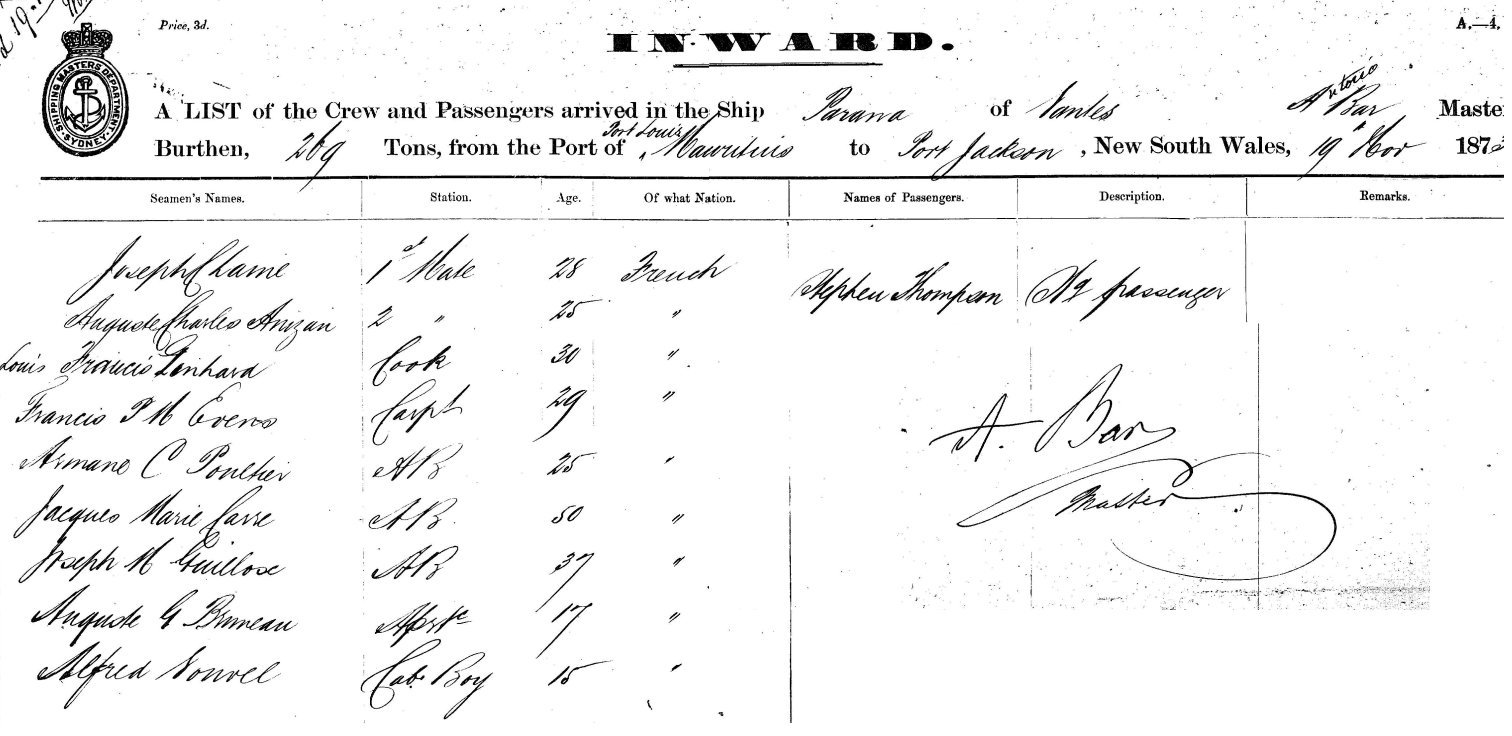 Price, 3d.
A.—4.
INWARD.
SHIPPING MASTERS DEPARTMENT SYDNEY
A LIST of the Crew and Passengers arrived in the Ship Parana of Nantes Antonio Bar Master
Burthen, 269 Tons, from the Port of Port Louis, Mauritius to Port Jackson, New South Wales, 19 Nov 187
Seamen's Names. Station. Age. Of what Nation. Names of Passengers. Description. Remarks.
Joseph 1st Mate 28 French Stephen Thompson passenger
Auguste Charles Anizan 2 " 25 "
Louis Francis Cook 30 "
Francis P M Evens Carpt 29 "
A. Bar
Armane C Poultier AB 25 "
Master
Jacques Marie Carre AB. 50 "
Joseph M Guillose AB 37 "
Auguste G Bruneau 17 "
Alfred Cab. Boy 15 "